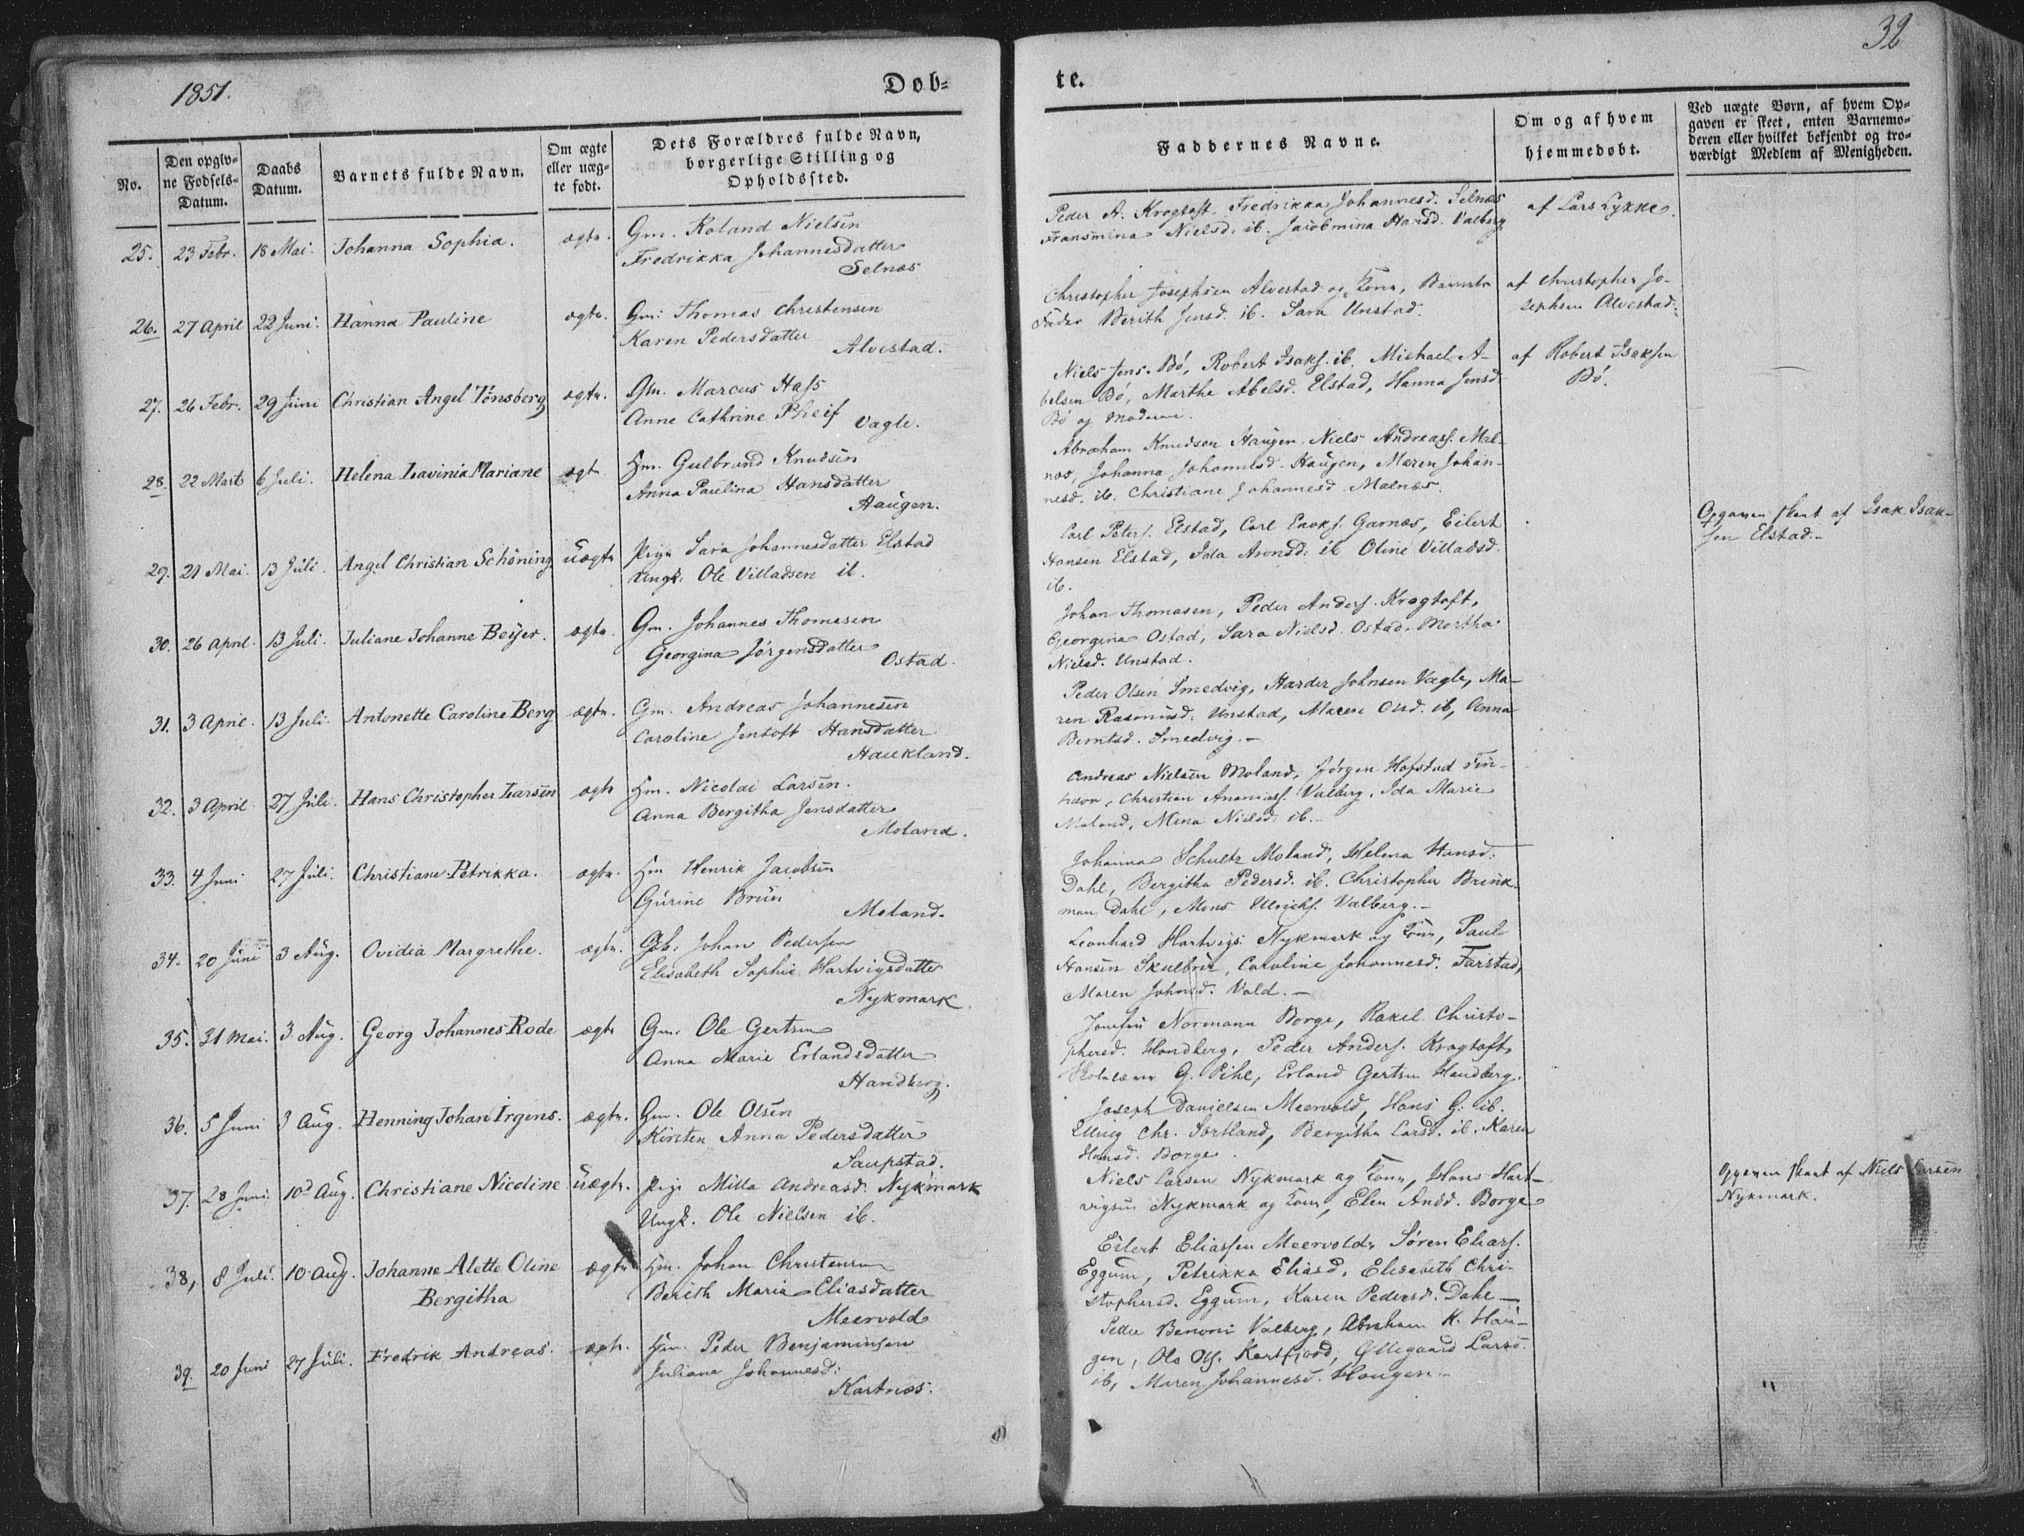 1851.
Døb-
te.
32
No.
Den opgiv-
ne Fødsels-
Datum.
Daabs
Datum.
Barnets fulde Navn.
Om ægte
eller uæg-
te født.
Dets Forældres fulde Navn,
borgerlige Stilling og
Opholdssted.
Faddernes Navne.
Om og af hvem
hjemmedøbt.
Ved uægte Børn, af hvem Op-
gaven er skeet, enten Barnemo-
deren eller hvilket bekjendt og tro-
værdigt Medlem af Menigheden.
25. 23 Febr. 18 Mai. Johanna Sophia. ægte. Gm. Roland Nielsen
Fredrikka Johannesdatter
Selnæs
Peder A. Krogtoft, Fredrikka Johannesd. Selnæs
Fransmina Nielsd. ib. Jacobmina Hansd. Valberg
af Lars Lykke.
26. 27 April 22 Juni. Hanna Pauline ægte. Gm: Thomas Christensen
Karen Pedersdatter
Alvestad.
Christopher Josephsen Alvestad og Kone, Barnets
Fader Berith Jensd. ib. Sara Unstad.
af Christopher Jo-
sephsen Alvestad.
27. 26 Febr. 29 Juni Christian Angel Tønsberg ægte. Gm. Marcus Hass
Anne Cathrine Pheif
Vagle.
Niels Jens. Bø, Robert Isaks. ib. Michael A-
belsen Bø, Martha Abelsd. Elstad, Hanna Jensd.
Bø og Moderen.
af Robert Isaksen
Bø.
28. 22 Marts 6 Juli. Helena Lavinia Mariane ægte Hm. Gulbrand Knudsen
Anna Paulina Hansdatter
Haugen.
Abraham Knudsen Haugen, Niels Andreass. Mal-
næs, Johanna Johannesd. Haugen, Maren Johan-
nesd. ib. Christiane Johannesd. Malnæs.
29. 21 Mai. 13 Juli. Angel Christian Schøning uægte Pige Sara Johannesdatter Elstad
Ungk. Ole Villadsen ib.
Carl Peters. Elstad, Carl Enoks. Garnæs, Eilert
Hansen Elstad, Ida Aronsd: ib Oline Villadsd.
ib.
Opgaven skeet af Isak Isak-
sen Elstad.-
30. 26 April. 13 Juli. Juliane Johanne Beyer. ægte. Gm. Johannes Thomasen
Georgina Jørgensdatter
Ostad.
Johan Thomasen, Peder Anders. Krogtoft,
Georgina Ostad, Sara Nielsd. Ostad. Martha
Nielsd. Unstad.
31. 3 April. 13 Juli. Antonette Caroline Berg ægte. Gm. Andreas Johannesen
Caroline Jentoft Hansdatter
Haukland.
Peder Olsen Smedvig, Harder Johnsen Vagle, Ma-
ren Rasmusd. Unstad, Maren Olsd. ib, Anna
Berntsd. Smedvig.-
32. 3 April 27 Juli. Hans Christopher Larsen ægte Hm. Nicolai Larsen.
Anna Bergitha Jensdatter
Moland.
Andreas Nielsen Moland, Jørgen Hofstad Fin-
navn, Christian Ananiass. Valberg. Ida Marie
Moland, Mina Nielsd. ib.
33. 4 Juni 27 Juli. Christiane Petrikka. ægte. Hm Henrik Jacobsen
Gurine Brun
Moland.
Johanna Schultz Moland, Helena Hansd.
Dahl, Bergitha Pedersd. ib. Christopher Brink-
man Dahl, Mons Ulricks. Valberg.-
34. 20 Juni 3 Aug. Ovidia Margrethe. ægte. Gb: Johan Pedersen
Elisabeth Sophie Hartvigsdatter
Nykmark.
Leonhard Hartvigs: Nykmark og Kone, Paul
Hansen Skulbru, Caroline Johannesd. Farstad,
Maren Johnsd. Vold.-
35. 31 Mai. 3 Aug. Georg Johannes Rode ægte Gm: Ole Gertsen
Anna Marie Erlandsdatter
Handberg.
Normann Borge, Rakel Christo-
phersd. Handberg, Peder Anders. Krogtoft
G. Pihl, Erland Gertsen Handberg.
36. 5 Juni 3 Aug. Henning Johan Irgens. ægte. Gm. Ole Olsen
Kirsten Anna Pedersdatter
Saupstad.
Joseph Danielsen Meervold, Hans G. ib.
Elling Chr. Sortland, Bergitha Larsd. ib. Karen
Hansd. Borge.
37. 28 Juni. 10d Aug. Christiane Nicoline uægte. Pige Milla Andreasd. Nykmark
Ungk. Ole Nielsen ib.
Niels Larsen Nykmark og Kone, Hans Hart-
vigsen Nykmark og Kone, Elen Andd. Borge
Opgaven skeet af Niels Larsen
Nykmark.
38, 8 Juli. 10 Aug. Johanne Alette Oline
Bergitha
ægte Hm. Johan Christensen
Berith Maria Eliasdatter
Meervold
Eilert Eliassen Meervold, Søren Eliass.
Eggum, Petrikka Eliasd, Elisabeth Chri-
stophersd. Eggum, Karen Pedersd. Dahl-
39. 20 Juni 27 Juli. Fredrik Andreas. ægte. Hm. Peder Benjaminsen
Juliana Johannesd:
Kartnæs.
Peder Benoni Valberg, Abraham K. Hau-
gen, Ole Ols. Kartfjord, Ollegaard Larsd.
ib, Maren Johannesd. Haugen.-